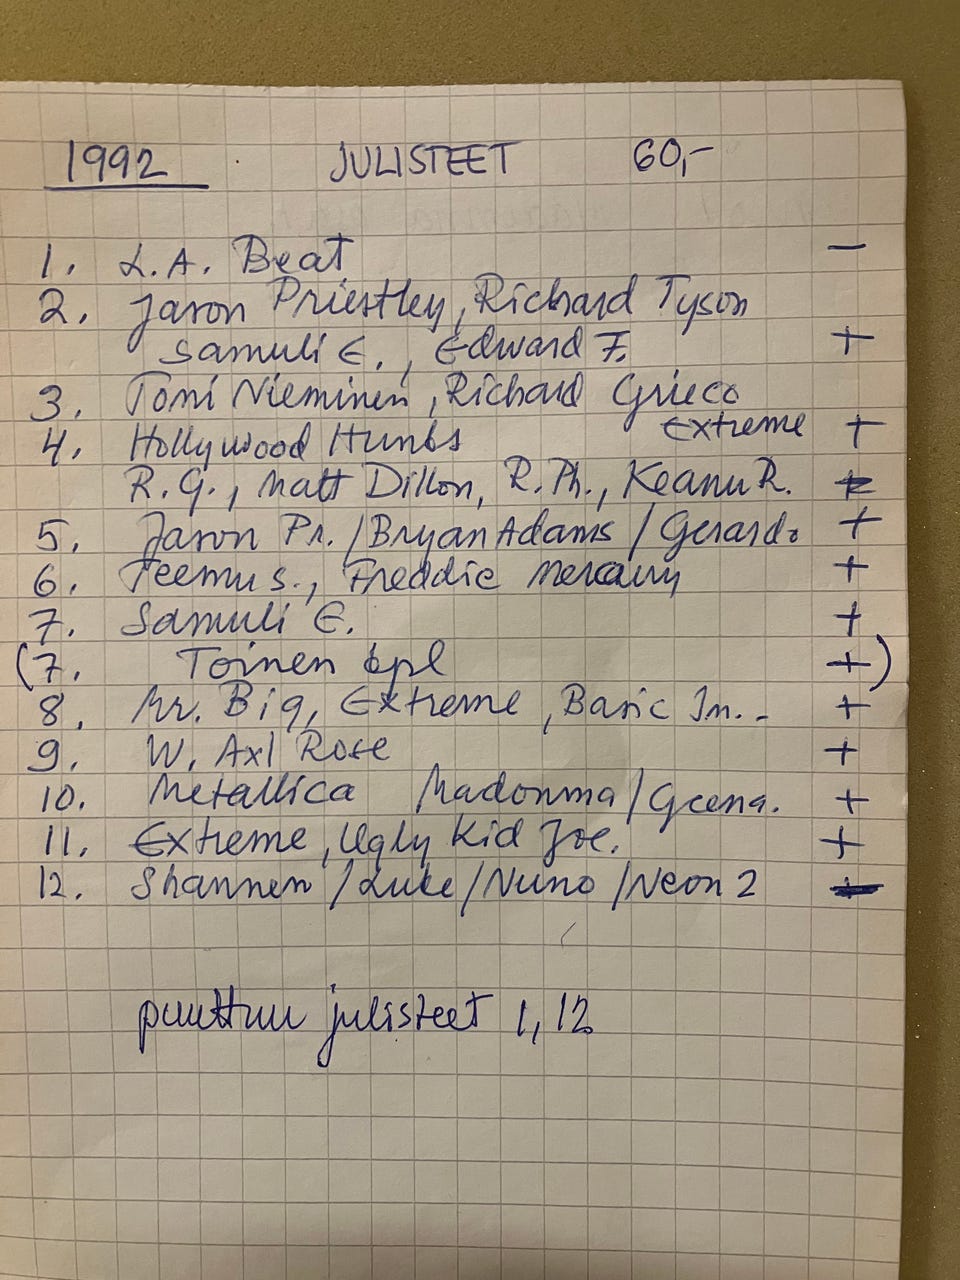 1992 JULISTEET 60,-
1. L.A. Beat -
2. Jason Priestley, Richard Tyson
Samuli E., Edward F. +
3. Tomi Nieminen, Richard Grieco
Extreme +
4. Hollywood Hunks
R.G., Matt Dillon, R.Ph., Keanu R. +
5. Jason Pr. / Bryan Adams / Gerardo +
6. Teemu S., Freddie Mercury +
7. Samuli E. +
(7. Toinen kpl +)
8. Mr. Big, Extreme, Basic In.. +
9. W. Axl Rose +
10. Metallica Madonna / Geena. +
11. Extreme, Ugly Kid Joe. +
12. Shannen / Luke / Nuno / Neon 2 -
puuttuu julisteet 1, 12